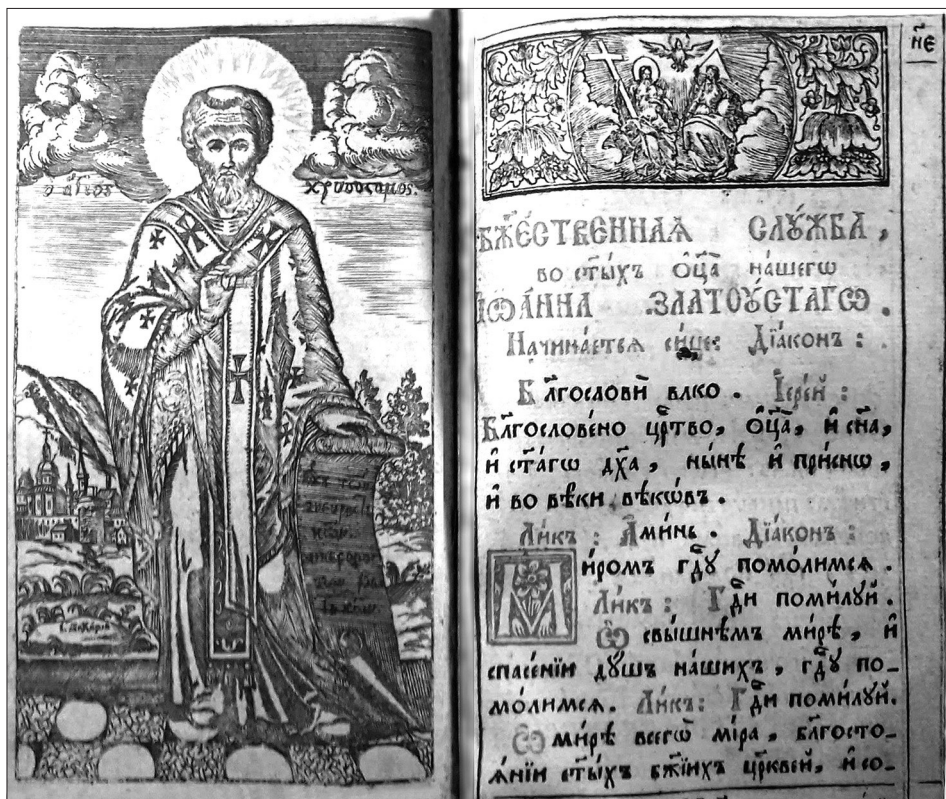 ὁ ἅγιος
н҃е
БЖ҃ЕСТВЕННАЯ СЛУ́ЖБА,
во ст҃ы́хъ ѻ҆ц҃а̀ на́шегѡ
І҆ѠА́ННА ЗЛАТОУ́СТАГѠ.
Начина́етсѧ си́це: Дїа́конъ:
Бл҃гословѝ влⷣко. І҆ере́й:
Бл҃гослове́но црⷭ҇тво, ѻ҆ц҃а̀, и҆ сн҃а,
и҆ ст҃а́гѡ дх҃а, ны́нѣ и҆ при́снѡ,
и҆ во вѣ́ки вѣкѡ́въ.
Ли́къ: А҆ми́нь. Дїа́конъ:
Ми́ромъ гдⷭ҇у помо́лимсѧ.
Ли́къ: Гдⷭ҇и поми́лꙋй.
Ѽ свы́шнѣмъ ми́рѣ, и҆
спасе́нїи дꙋ́шъ на́шихъ, гдⷭ҇ꙋ по-
мо́лимсѧ. Ли́къ: Гдⷭ҇и поми́лꙋй.
Ѽ ми́рѣ всегѡ̀ мі́ра, бл҃госто-
ѧ́нїи ст҃ы́хъ бж҃їихъ цр҃кве́й, и҆ со-